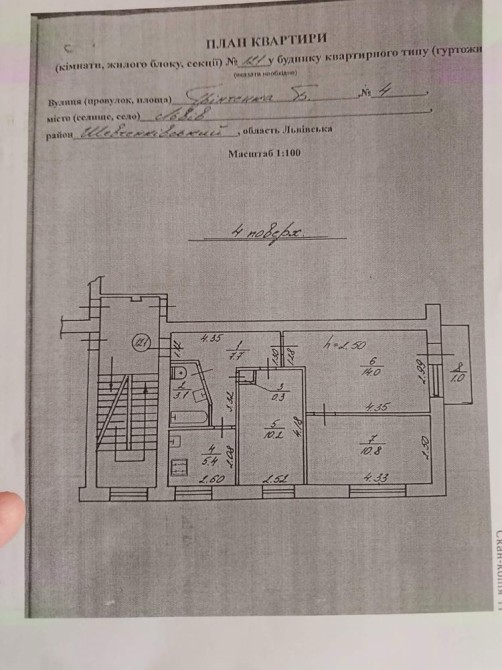 ПЛАН КВАРТИРИ
(кімнати, жилого блоку, секції) № 121 у будинку квартирного типу (гуртожи
(вказати необхідне)
Вулиця (провулок, площа) Грінченка Б. , № 4 ,
місто (селище, село) Львів ,
район Шевченківський , область Львівська
Масштаб 1:100
4 поверх.
4.35
h=2.50
121
1
7.7
6
14.0
8
1.0
2.99
2
3.1
3
0.3
4.35
5
10.2
4.18
4
5.4
2.08
7
10.8
2.50
2.60
2.52
4.33